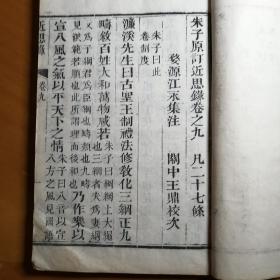 朱子原訂近思錄卷之九 凡二十七條
婺源江永集注 關中王鼎校次
朱子曰此
卷制度
濂溪先生曰古聖王制禮法修教化三綱正九
疇敘百姓大和萬物咸若 朱子曰綱網上大繩
也三綱者夫為妻綱
父為子綱君為臣綱也疇類也九疇
見洪範若順也此所謂理而後和也 乃作樂以
宣八風之氣以平天下之情 朱子曰八音以宣
八方之風見國語
近思錄 卷九